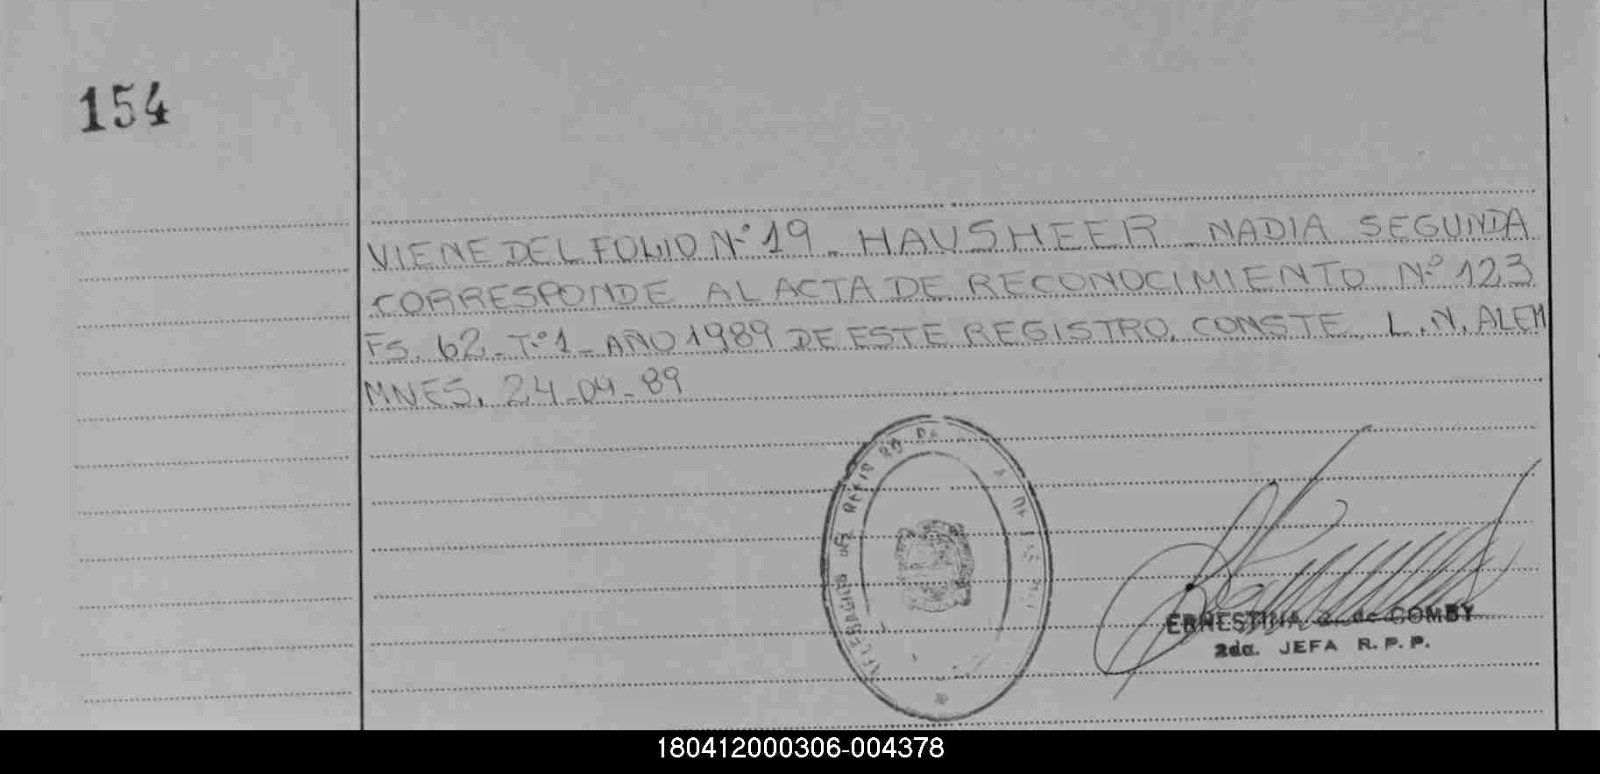 154
VIENE DEL FOLIO Nº 19_ HAUSHEER _ NADIA SEGUNDA
CORRESPONDE AL ACTA DE RECONOCIMIENTO Nº 123
FS. 62_ Tº 1_ AÑO 1989 DE ESTE REGISTRO. CONSTE, L.N. ALEM
MNES. 24_04_89
ERNESTINA de COMBY
2da. JEFA R.P.P.
180412000306-004378